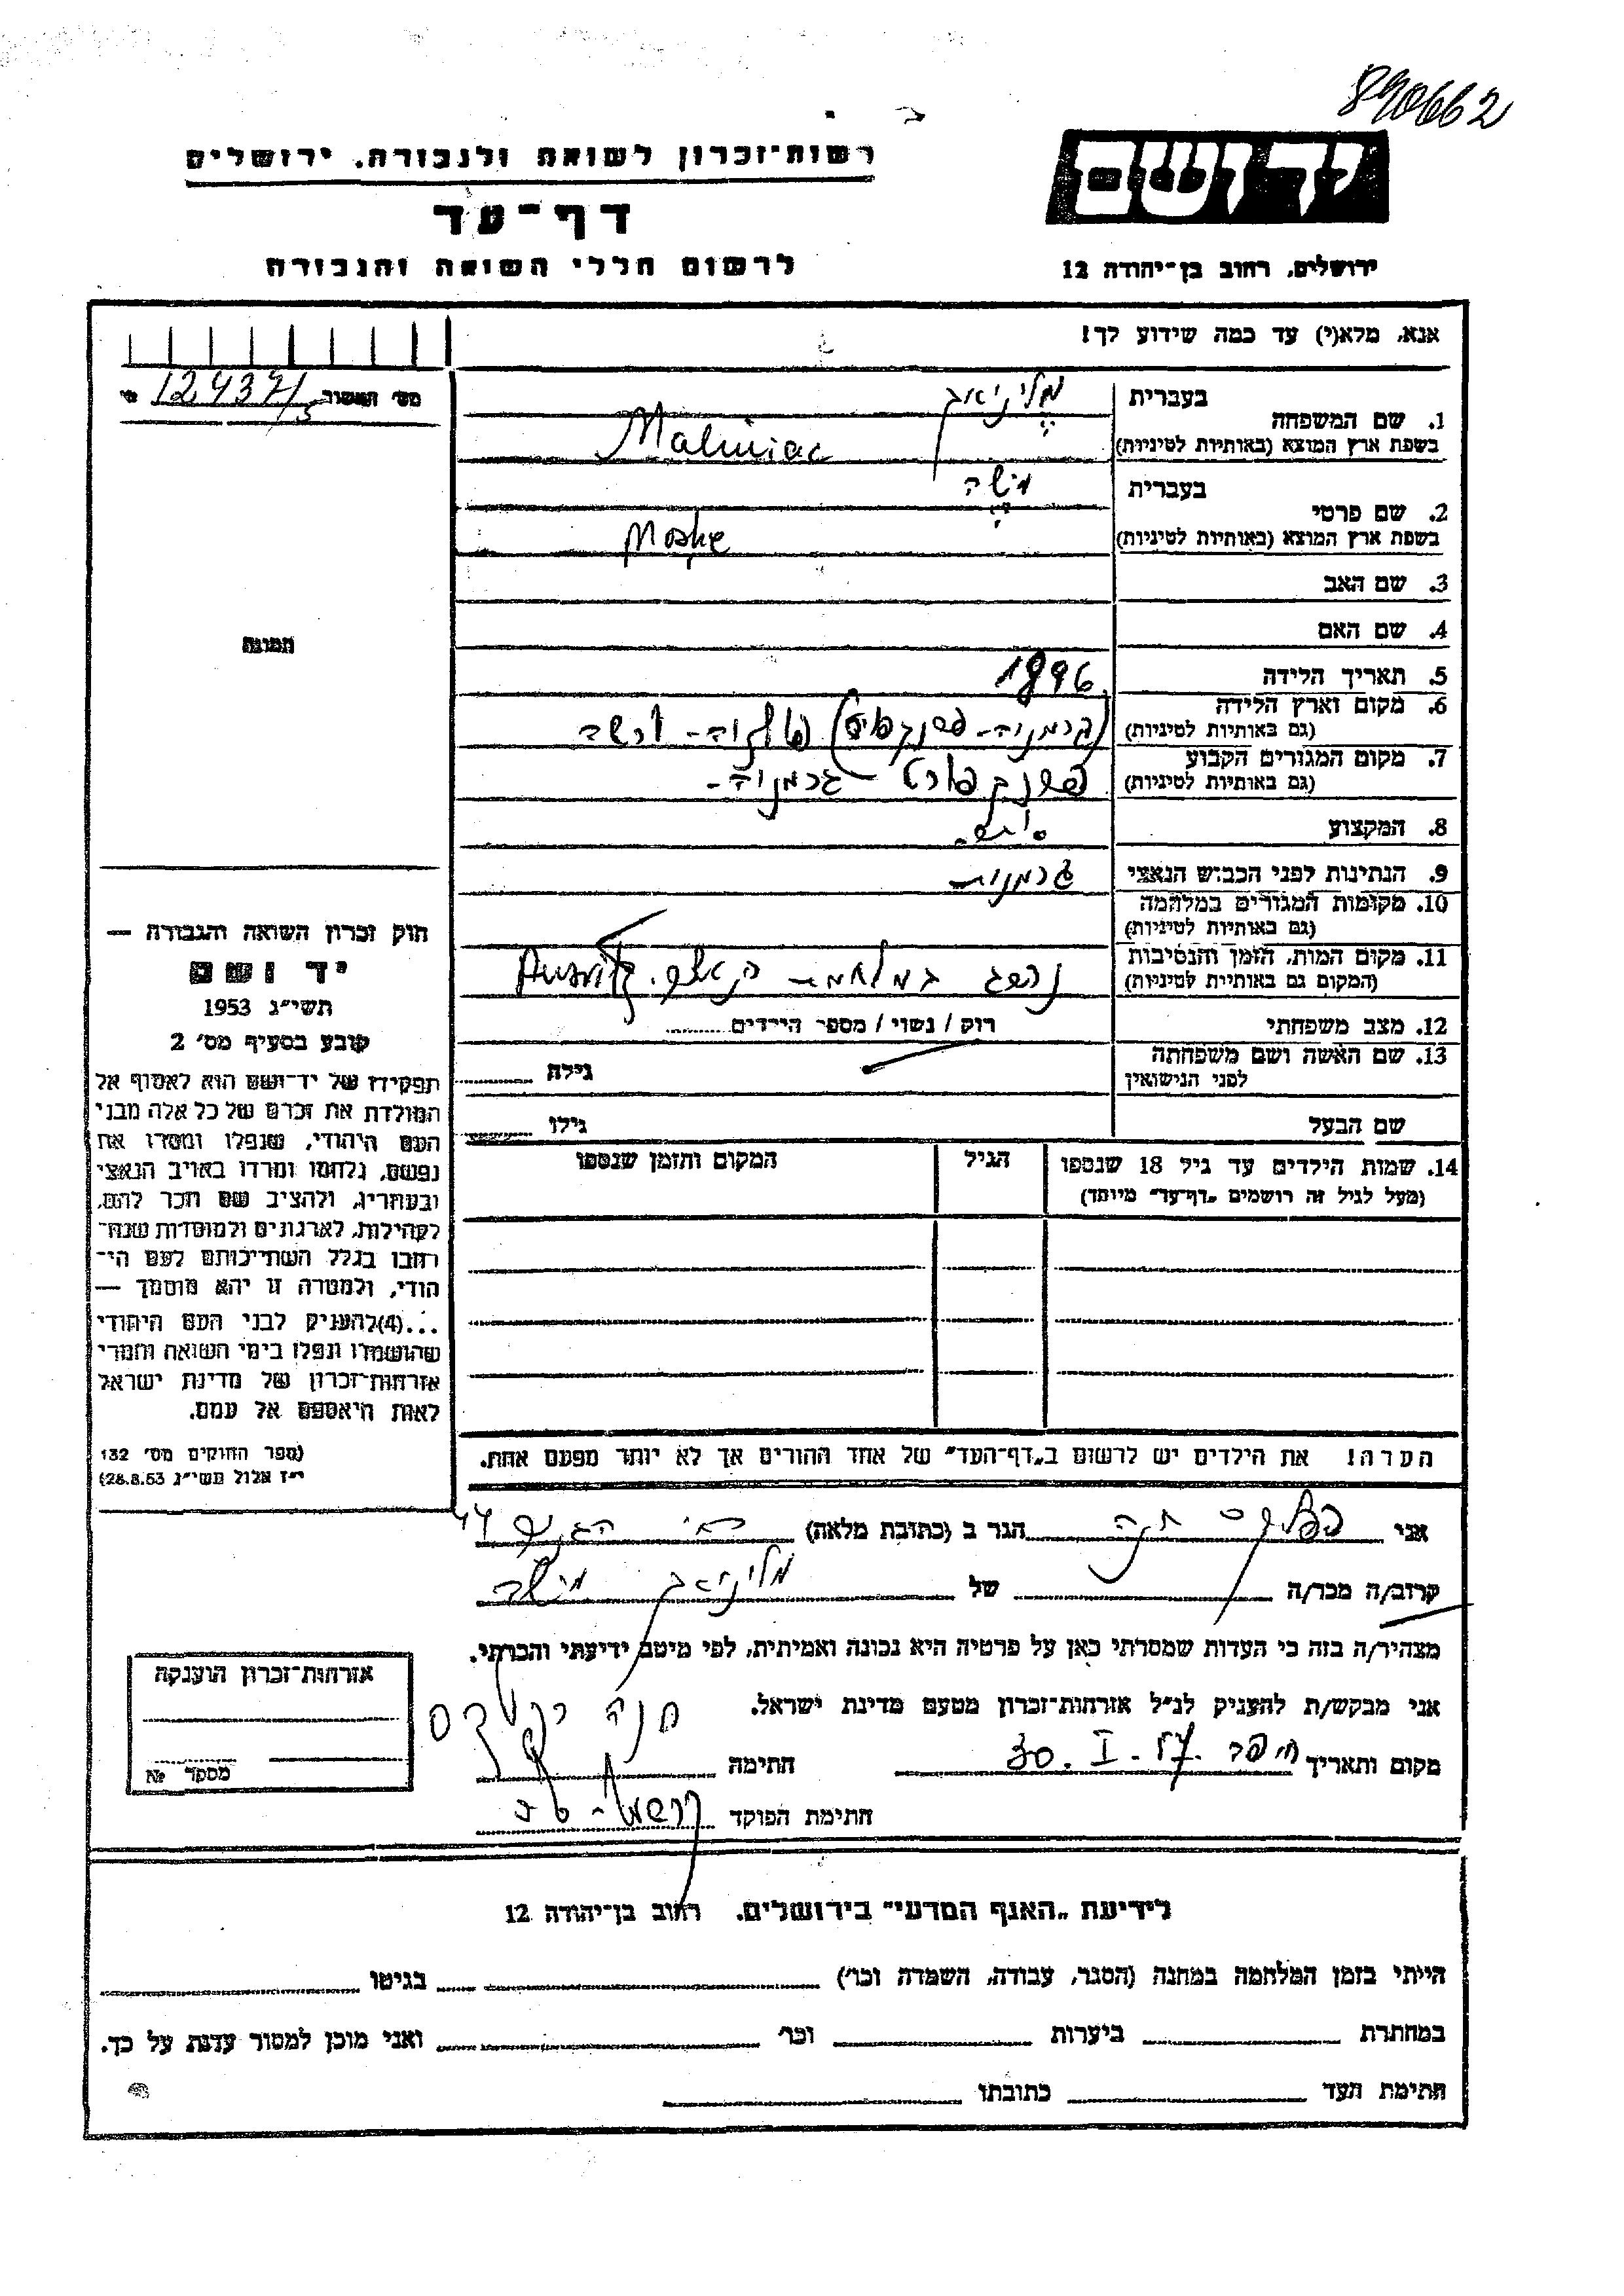 890662
יד ושם
רשות-זכרון לשואה ולגבורה, ירושלים
דף-עד
לרשום חללי השואה והגבורה
ירושלים, רחוב בן-יהודה 12
אנא, מלא(י) עד כמה שידוע לך!
מס' האשור
בעברית
1. שם המשפחה
מליניאק
בשפת ארץ המוצא (באותיות לטיניות)
Maliniac
בעברית
2. שם פרטי
משה
בשפת ארץ המוצא (באותיות לטיניות)
Moshe
3. שם האב
4. שם האם
תמונה
5. תאריך הלידה
1896
6. מקום וארץ הלידה
(גם באותיות לטיניות)
ורשה
7. מקום המגורים הקבוע
(גם באותיות לטיניות)
פרנקפורט - גרמניה -
8. המקצוע
9. הנתינות לפני הכבוש הנאצי
גרמנית
10. מקומות המגורים במלחמה
(גם באותיות לטיניות)
11. מקום המות, הזמן והנסיבות
(המקום גם באותיות לטיניות)
12. מצב משפחתי
רוק / נשוי / מספר הילדים
13. שם האשה ושם משפחתה
לפני הנישואין
גילה
שם הבעל
גילו
14. שמות הילדים עד גיל 18 שנספו
(מעל לגיל זה רושמים "דף-עד" מיוחד)
הגיל
המקום והזמן שנספו
הערה! את הילדים יש לרשום ב"דף-העד" של אחד ההורים אך לא יותר מפעם אחת.
חוק זכרון השואה והגבורה —
יד ושם
תשי"ג 1953
קובע בסעיף מס' 2
תפקידו של יד-ושם הוא לאסוף אל
המולדת את זכרם של כל אלה מבני
העם היהודי, שנפלו ומסרו את
נפשם, נלחמו ומרדו באויב הנאצי
ובעוזריו, ולהציב שם וזכר להם,
לקהילות, לארגונים ולמוסדות שנח-
רבו בגלל השתייכותם לעם הי-
הודי, ולמטרה זו יהא מוסמך —
...(4)להעניק לבני העם היהודי
שהושמדו ונפלו בימי השואה והמרי
אזרחות-זכרון של מדינת ישראל
לאות היאספם אל עמם.
(ספר החוקים מס' 132
י"ז אלול תשי"ג 28.8.53)
אני חנה הגר ב (כתובת מלאה)
קרוב/ה מכר/ה של מליניאק משה
מצהיר/ה בזה כי העדות שמסרתי כאן על פרטיה היא נכונה ואמיתית, לפי מיטב ידיעתי והכרתי.
אני מבקש/ת להעניק לנ"ל אזרחות-זכרון מטעם מדינת ישראל.
מקום ותאריך חיפה 30. I. 57 חתימה חנה
חתימת הפוקד
אזרחות-זכרון הוענקה
מספר №
לידיעת "האגף המדעי" בירושלים, רחוב בן-יהודה 12
הייתי בזמן המלחמה במחנה (הסגר, עבודה, השמדה וכו') בגיטו
במחתרת ביערות וכו' ואני מוכן למסור עדות על כך.
חתימת העד כתובתו